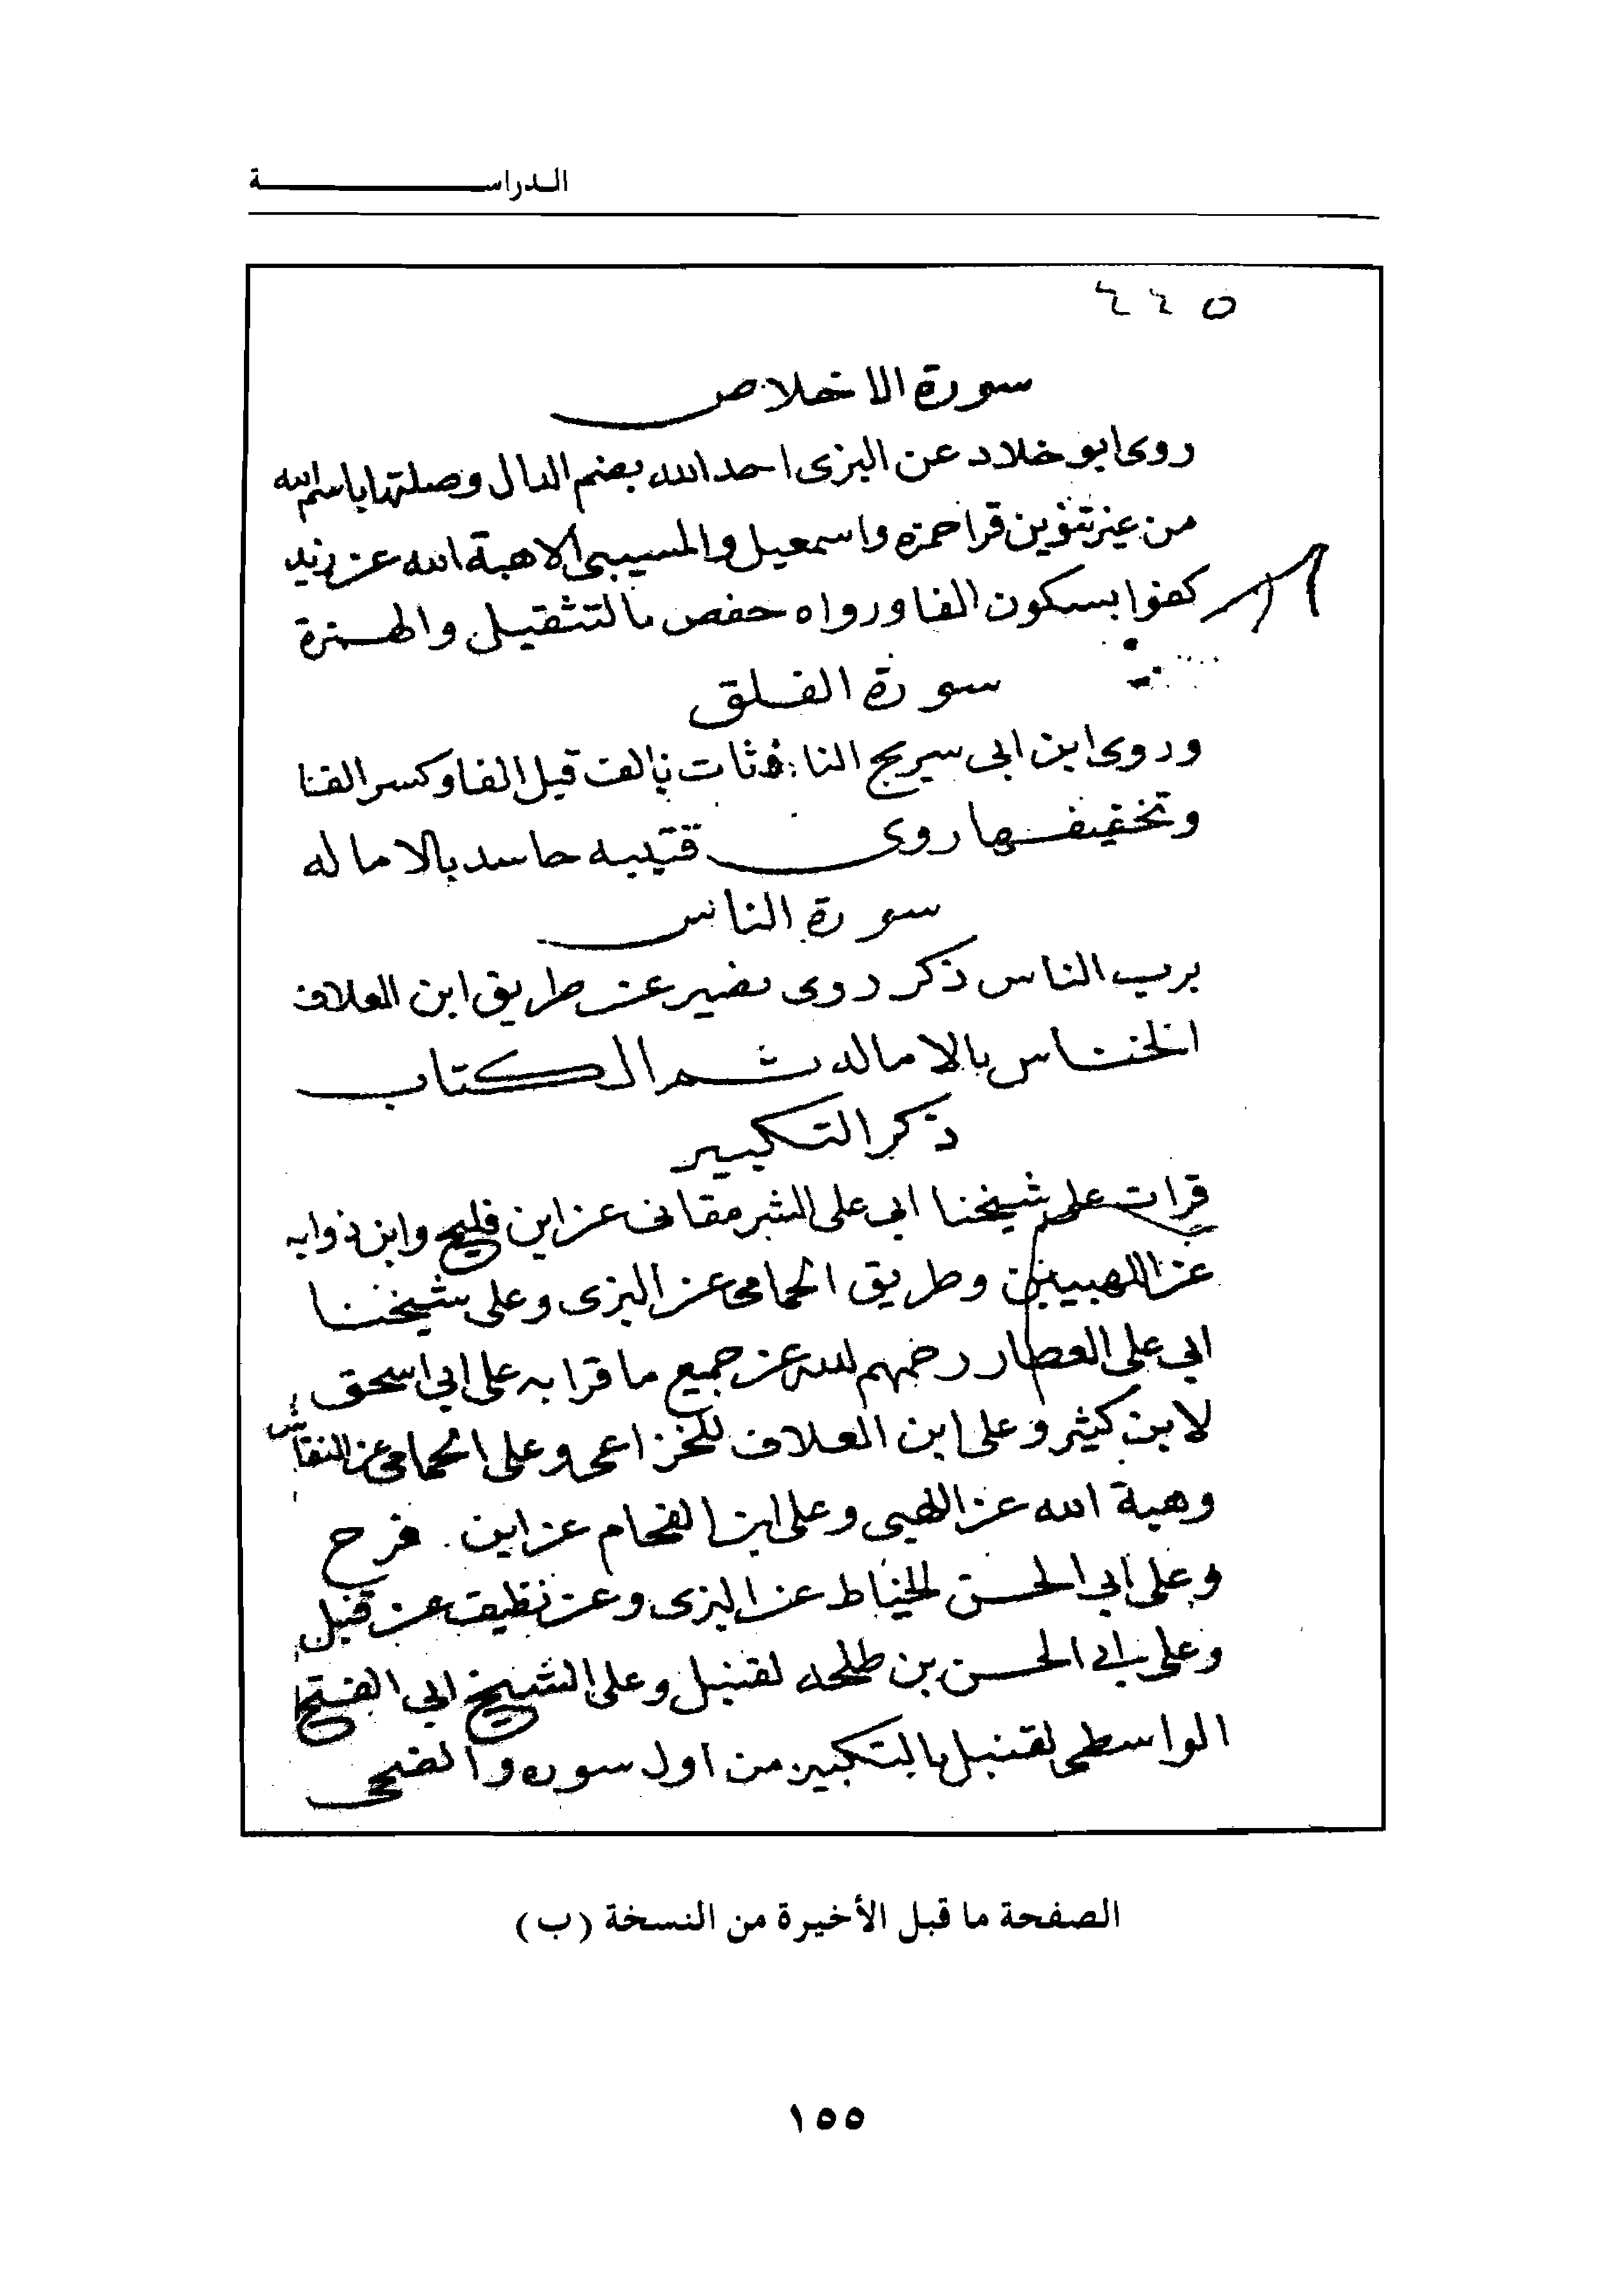 الدراسة
٤٤٥
سورة الاخلاص
روى ابو خلاد عن البزى احد الله بضم الدال وصلتها باسم الله
من غير تنوين قرا حمزه واسمعيل والمسيبى الا هبة الله عن زيد
كفوا بسكون الفا ورواه حفص بالتثقيل والهمزة
سورة الفلق
وروى ابن ابى سريج النافثات بالف قبل الفا وكسر الفا
وتخفيفها روى قتيبه حاسد بالاماله
سورة الناس
برب الناس ذكر روى نصير عن طريق ابن العلاف
الخناس بالاماله تم الكتاب
ذكر التكبير
قرات على شيخنا ابى على الشرمقانى عن ابن فليح وابن ذوابه
عن اللهبيين وطريق الحمامى عن البزى وعلى شيخنا
ابي على العطار رحمهم الله عن جميع ما قرا به على ابي اسحق
لابن كثير وعلى ابن العلاف للخزاعى وعلى الحمامى عن النقاش
وهبة الله عن اللهبى وعلى ابن الفحام عن ابن فرح
وعلى ابي الحسن الخياط عن البزى وعن نظيف عن قنبل
وعلى ابي الحسن بن طلحه لقنبل وعلى الشيخ ابي الفتح
الواسطى لقنبل بالتكبير من اول سوره والضحى
الصفحة ما قبل الأخيرة من النسخة (ب)
١٥٥